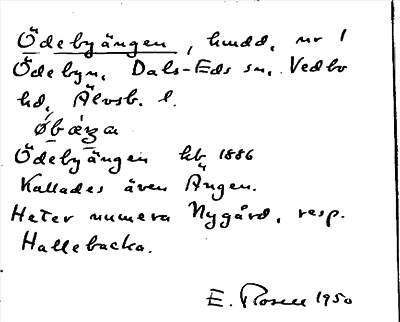 Ödebyängen, hmdd. nr 1
Ödebyn, Dals-Eds sn, Vedbo
hd, Älvsb. l.
Ödebyängen hb 1886
Kallades även Ängen.
Heter numera Nygård, resp.
Hallebacka.
E. Rosell 1950